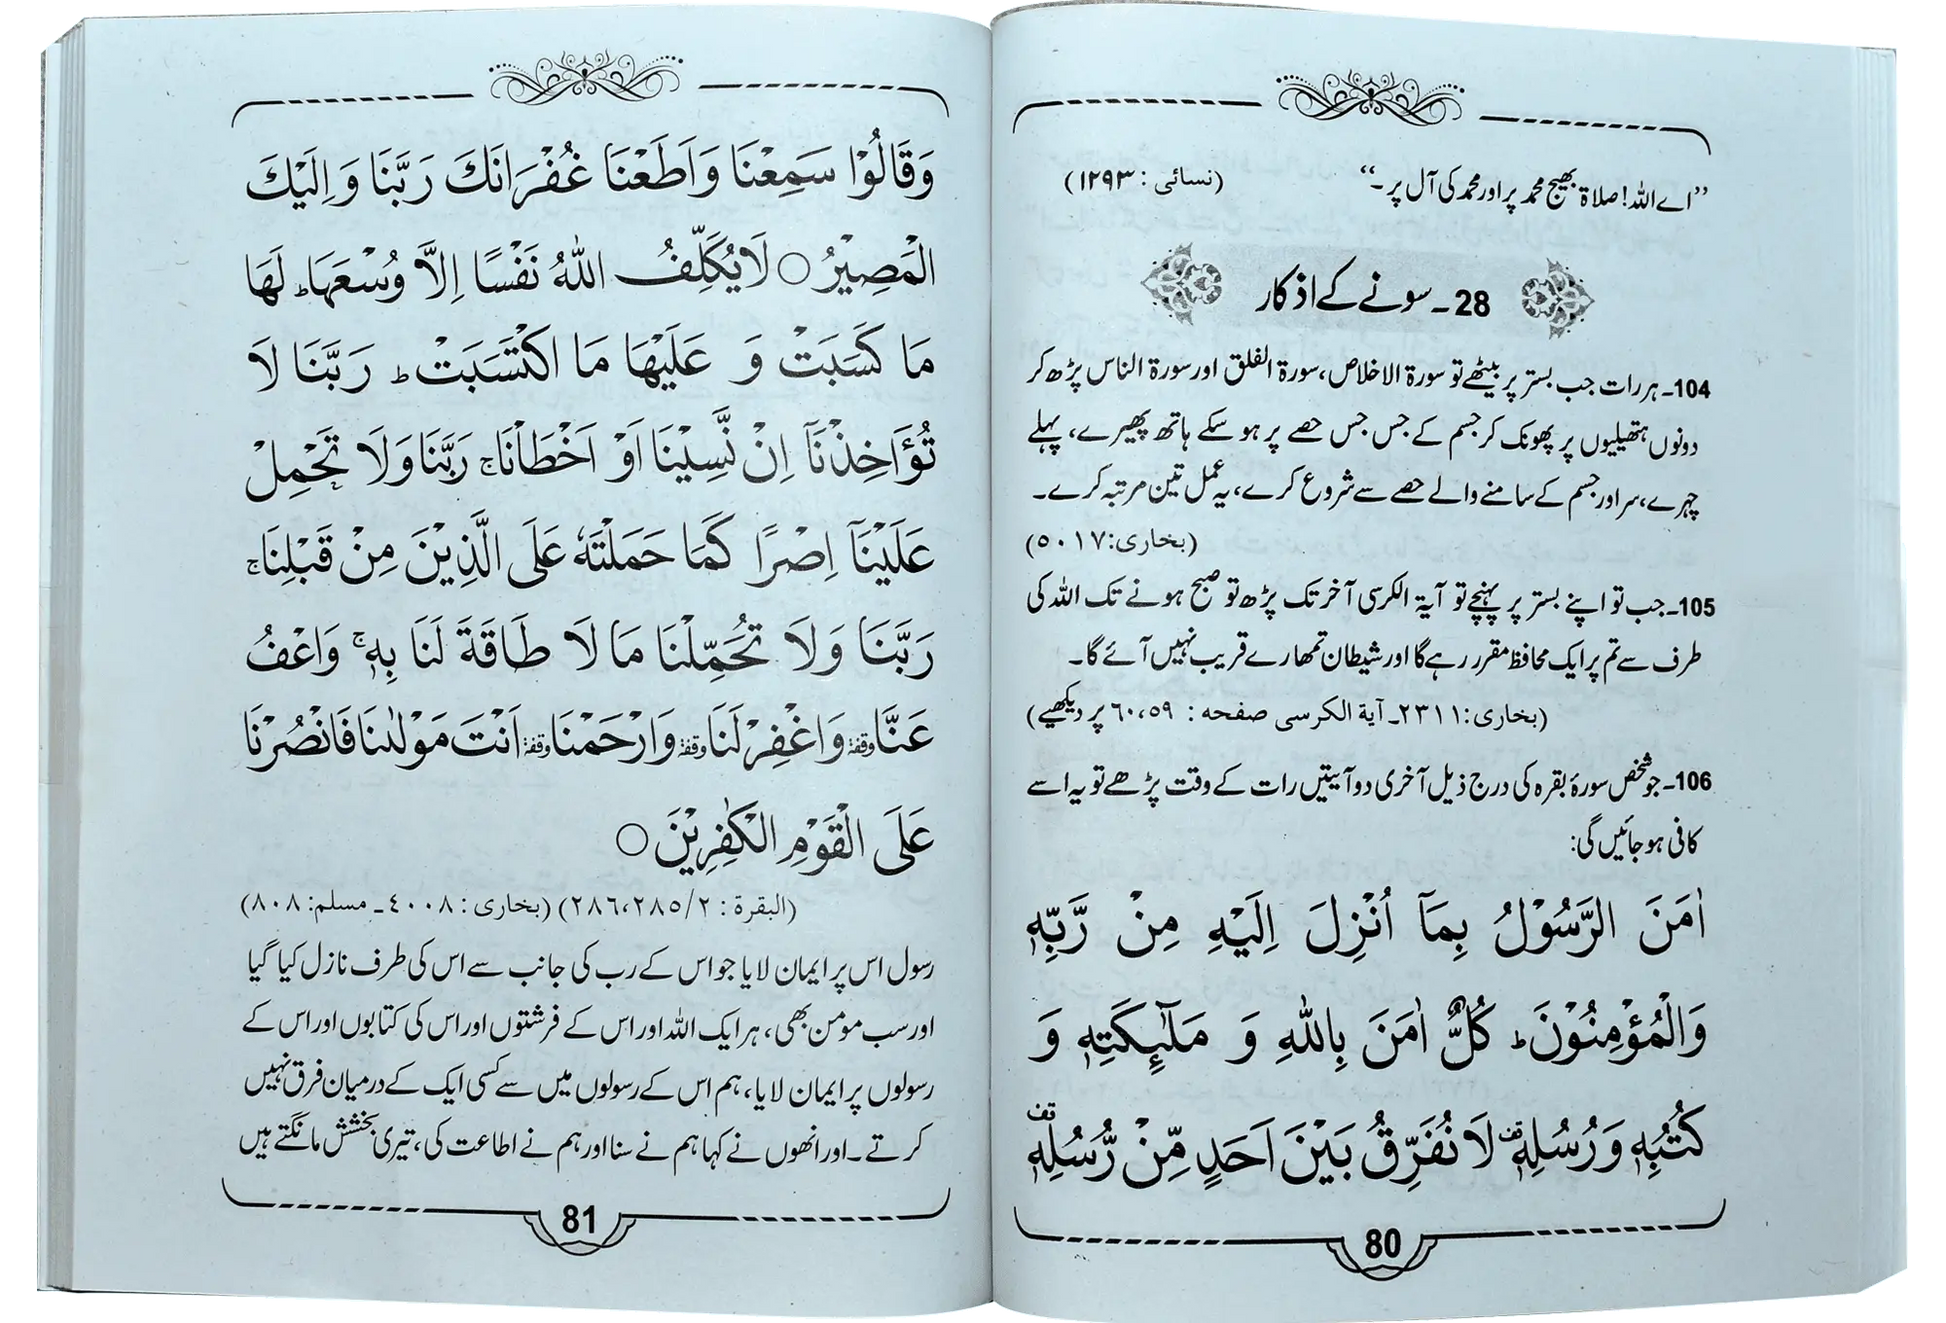 ”اے اللہ! صلاۃ بھیج محمد پر اور محمد کی آل پر۔“ (نسائی : ۱۲۹۳)
28۔ سونے کے اذکار
104۔ ہر رات جب بستر پر بیٹھے تو سورۃ الاخلاص، سورۃ الفلق اور سورۃ الناس پڑھ کر
دونوں ہتھیلیوں پر پھونک کر جسم کے جس جس حصے پر ہو سکے ہاتھ پھیرے، پہلے
چہرے، سر اور جسم کے سامنے والے حصے سے شروع کرے، یہ عمل تین مرتبہ کرے۔
(بخاری: ۵۰۱۷)
105۔ جب تو اپنے بستر پر پہنچے تو آیۃ الکرسی آخر تک پڑھ تو صبح ہونے تک اللہ کی
طرف سے تم پر ایک محافظ مقرر رہے گا اور شیطان تمھارے قریب نہیں آئے گا۔
(بخاری: ۲۳۱۱۔ آیة الکرسی صفحه : ۶۰،۵۹ پر دیکھیے)
106۔ جو شخص سورۂ بقرہ کی درج ذیل آخری دو آیتیں رات کے وقت پڑھے تو یہ اسے
کافی ہو جائیں گی:
اٰمَنَ الرَّسُوْلُ بِمَآ اُنْزِلَ اِلَيْهِ مِنْ رَّبِّهٖ
وَالْمُؤْمِنُوْنَ ؕ كُلٌّ اٰمَنَ بِاللّٰهِ وَ مَلٰٓىِٕكَتِهٖ وَ
كُتُبِهٖ وَرُسُلِهٖ قف لَا نُفَرِّقُ بَيْنَ اَحَدٍ مِّنْ رُّسُلِهٖ قف
80
وَقَالُوْا سَمِعْنَا وَاَطَعْنَا غُفْرَانَكَ رَبَّنَا وَاِلَيْكَ
الْمَصِيْرُ ○ لَا يُكَلِّفُ اللّٰهُ نَفْسًا اِلَّا وُسْعَهَا ؕ لَهَا
مَا كَسَبَتْ وَ عَلَيْهَا مَا اكْتَسَبَتْ ؕ رَبَّنَا لَا
تُؤَاخِذْنَآ اِنْ نَّسِيْنَا اَوْ اَخْطَاْنَا ۚ رَبَّنَا وَلَا تَحْمِلْ
عَلَيْنَآ اِصْرًا كَمَا حَمَلْتَهٗ عَلَى الَّذِيْنَ مِنْ قَبْلِنَا ۚ
رَبَّنَا وَلَا تُحَمِّلْنَا مَا لَا طَاقَةَ لَنَا بِهٖ ۚ وَاعْفُ
عَنَّا وقفة وَاغْفِرْ لَنَا وقفة وَارْحَمْنَا وقفة اَنْتَ مَوْلٰىنَا فَانْصُرْنَا
عَلَى الْقَوْمِ الْكٰفِرِيْنَ ○
(البقرة : ۲/۲۸۵،۲۸۶) (بخاری : ۴۰۰۸۔ مسلم: ۸۰۸)
رسول اس پر ایمان لایا جو اس کے رب کی جانب سے اس کی طرف نازل کیا گیا
اور سب مومن بھی، ہر ایک اللہ اور اس کے فرشتوں اور اس کی کتابوں اور اس کے
رسولوں پر ایمان لایا، ہم اس کے رسولوں میں سے کسی ایک کے درمیان فرق نہیں
کرتے۔ اور انھوں نے کہا ہم نے سنا اور ہم نے اطاعت کی، تیری بخشش مانگتے ہیں
81